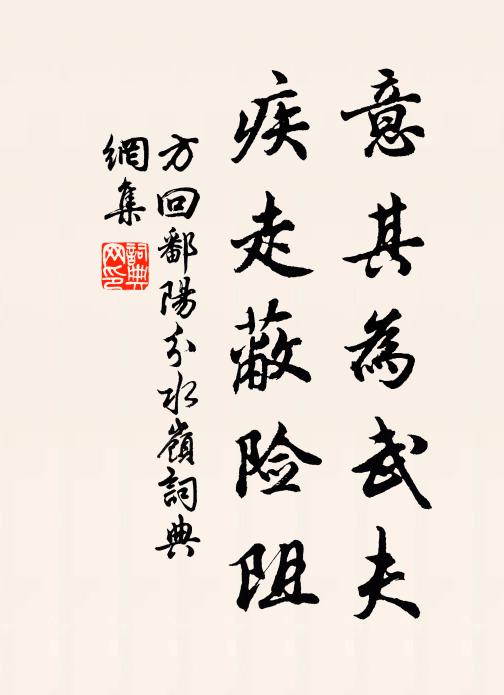 意其為武夫
疾走蔽险阻
方回鄱陽分水嶺詞典
網集
詞典
网印